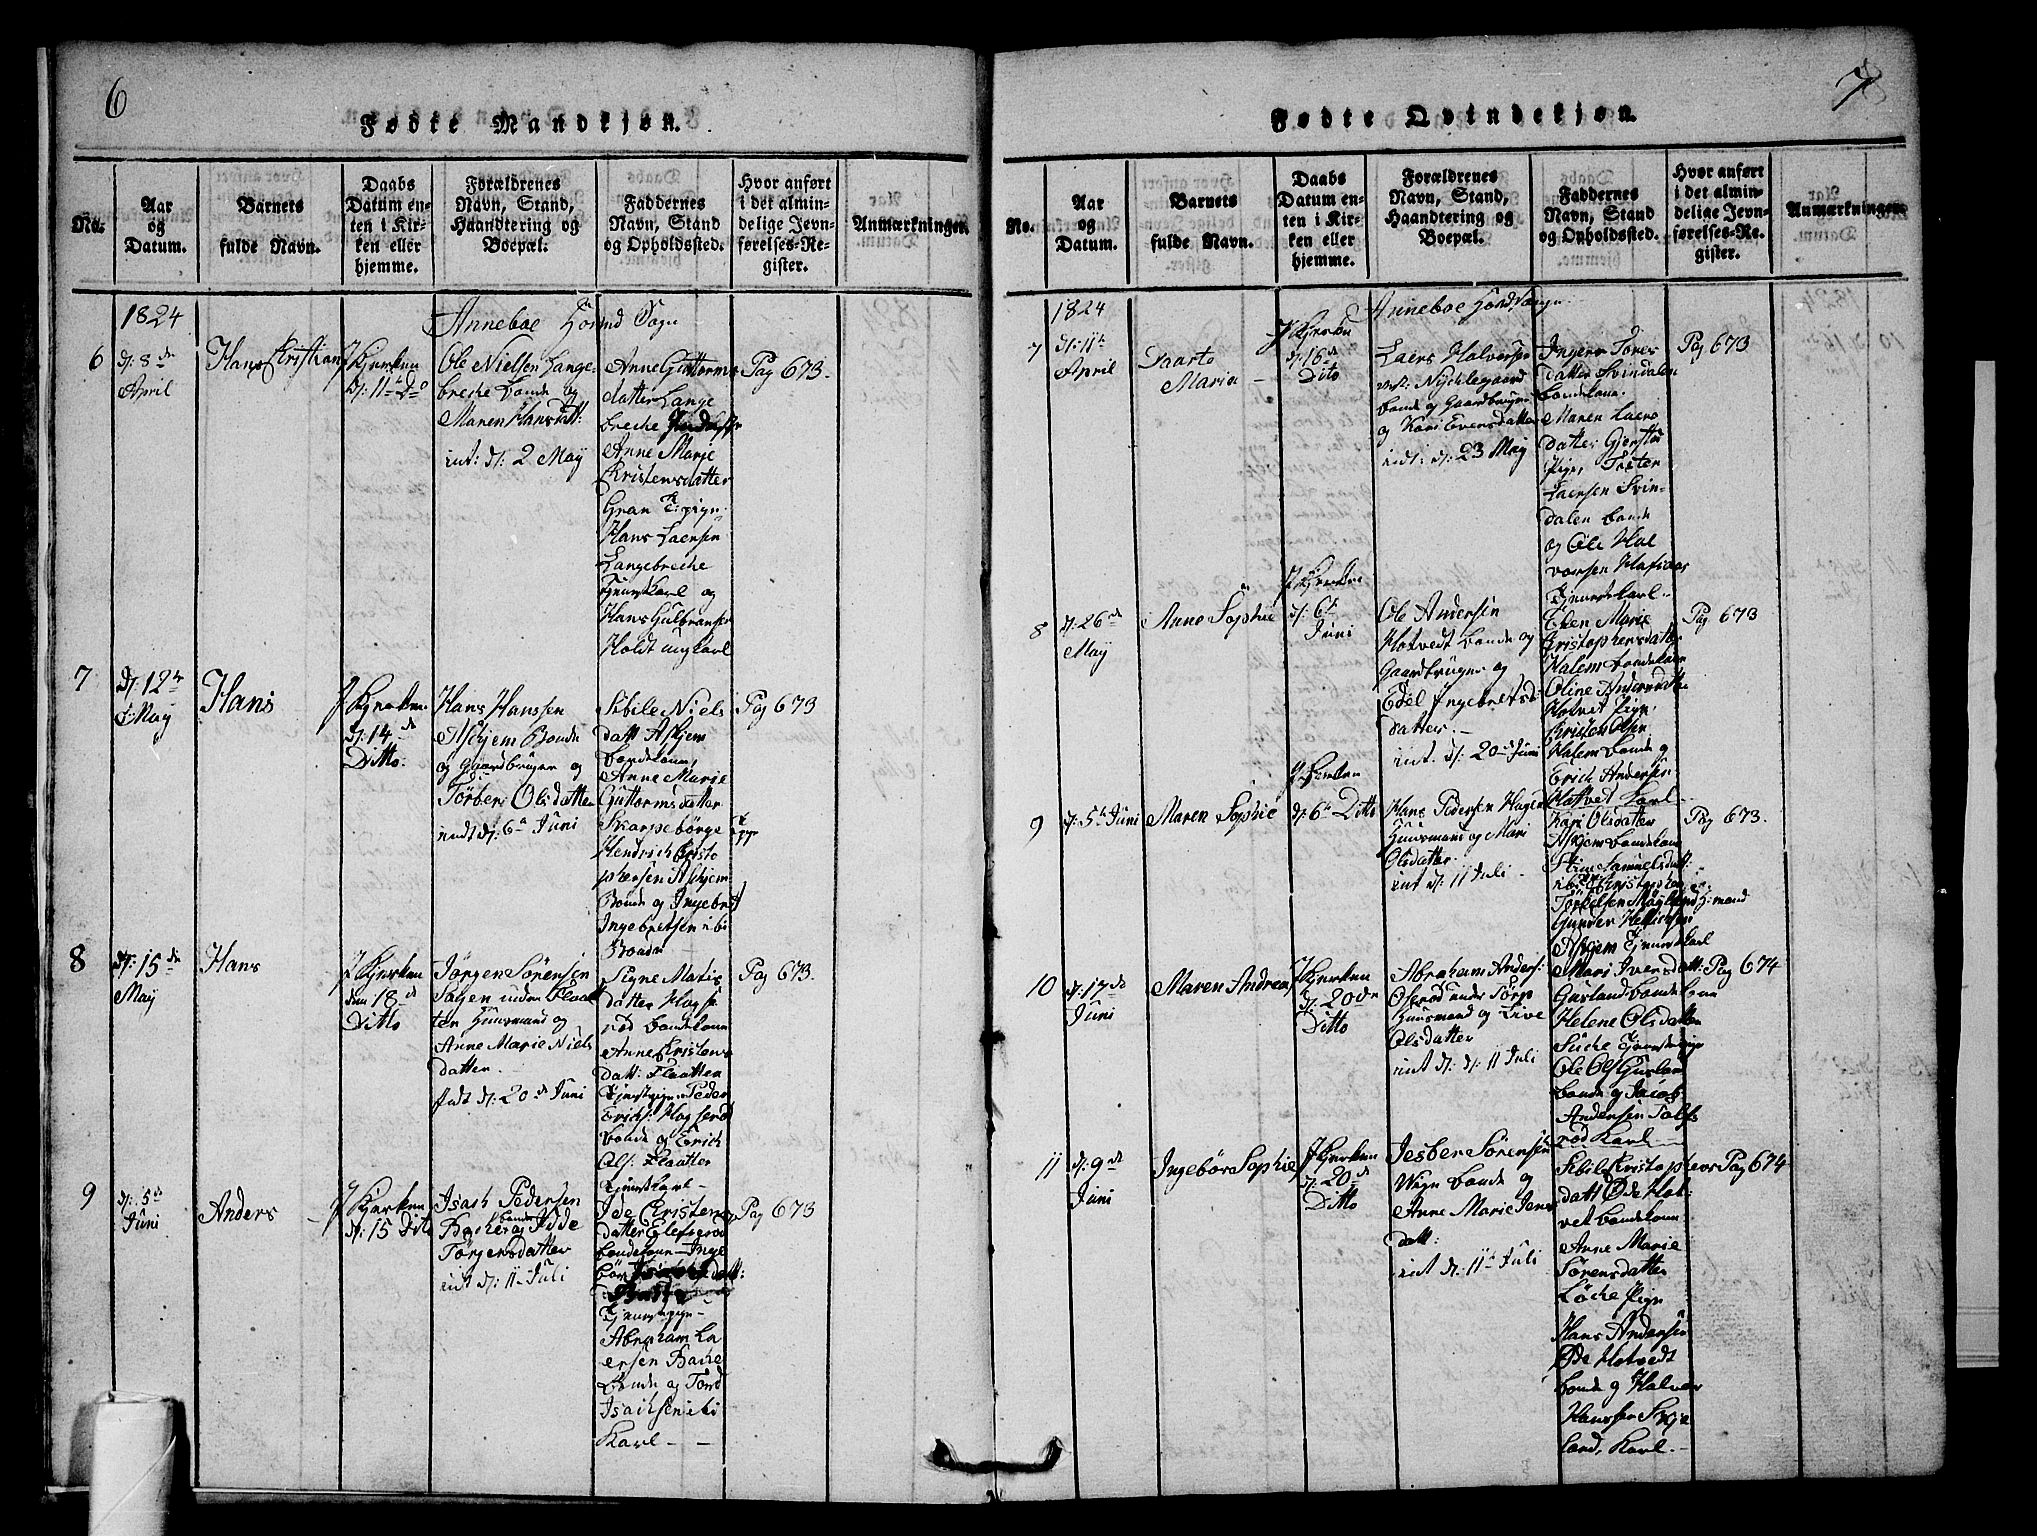 6
Fødte Mandkjøn.
No.
Aar
og
Datum.
Barnets
fulde Navn.
Daabs
Datum en-
ten i Kir-
ken eller
hjemme.
Forældrenes
Navn, Stand,
Haandtering og
Boepæl.
Faddernes
Navn, Stand
og Opholdssted.
Hvor anført
i det almin-
delige Jevn-
førelses-Re-
gister.
Anmærkninger.
1824
Anneboe Hoved Sogn
6
d: 8de
April
Hans Kristian
J Kjerken
d: 11te Do
Ole Nielsen Lange-
breche bonde og
Maren Hansdatt:
int: d: 2 May
Anne Guttorms
datter Lange
breche
Anne Marje
Kristensdatter
Gran
Hans Laersen
Langebreche
Tjenestkarl og
Hans Gulbransen
Holdt ungkarl
Pag 673.
7
d: 12te
May
Hans
J Kjerken
d: 14de
Ditto.
Hans Hanssen
Askjem Bonde
og Gaardbruger og
Torber Olsdatter
indt d: 6te Juni
Sibile Niels
datt Askjem
bondekone,
Anne Marie
Guttormsdatter
Skarpebørge
Hendrich Kristo
phersen Askjem
Bonde og Ingebret
Ingebretsen ibi
Bonde
Pag 673
8
d: 15de
May
Hans
J Kjerken
den 18de
Ditto
Jørgen Sørensen
Solgen under Flaat
ten Huusmand og
Anne Marie Niels
datter.
indt d: 20de Juni
Signe Matis
datter Hogse
rød bondekone
Anne Kristens
datt: Flaatten
Tjenstpige Peder
Erichs: Hogserød
bonde og Erich
Ols: Flaatten
Tjenestkarl
Pag 673.
9
d: 5de
Juni
Anders
J Kjerken
d: 15 Dito
Isach Pedersen
Backe bonde og Idde
Torgersdatter
int d: 11te Juli
Ide Kristens
datter Elefserød
bondekone Inge
bør
datt:
Tjenestpige
Abraham La
ersen Backe
bonde og Tord
Isachsen ibi
Karl
Pag 673
7
Fødte Qvindekjøn.
No.
Aar
og
Datum.
Barnets
fulde Navn.
Daabs
Datum en-
ten i Kir-
ken eller
hjemme.
Forældrenes
Navn, Stand,
Haandtering og
Boepæl.
Faddernes
Navn, Stand
og Opholdssted.
Hvor anført
i det almin-
delige Jevn-
førelses-Re-
gister.
Anmærkninger.
1824
Anneboe Hovedsogn
7
d: 11te
April
Maria
J Kjerken
d: 16de
Dito
Laers Halvorsen
Nychlegaard
bonde og Gaardbruger
og Kari Evensdatter
indt: d: 23 May
Ingeer Tores
datter Svindalen
bondekone.
Maren Laers
datter Gjerstu
Pige, Toster
Laersen Svin-
dalen bonde
og Ole Hal
vorsen
Tjenestekarl.
Pag 673
8
d: 26de
May
Anne Sophie
J Kjerken
d: 6te
Juni
Ole Andersen
Hotvedt bonde og
Gaardbruger og
Edel Ingebretsd:
datter.
int. d: 20de Juni
Elen Marie
Kristophersdatter
Holem bondekone
Oline Andersdatt
Hotvet Pige,
Kristen Olsen
Holem bonde og
Erich Andersen
Hotvet Karl
Pag 673
9
d: 5te Juni
Maren Sophie
J Kjerken
d: 6te Ditto
Hans Pedersen Hagen
Huusmand og Mari
Olsdatter
int d: 11 Juli
Kari Olsdatter
Askjem bondekone
Stine Samuelsdatt:
ibi Kristopher
Torkelsen H: mand
Gunder
Askjem Tjenestkarl
Pag 673.
10
d: 17de
Juni
Maren Andrea
J Kjerken
d: 20de
Ditto
Abraham Anders:
Oserød under Torp
Huusmand og Live
Olsdatter
int d: d: 11 Juli
Mari Iversdatt:
Gusland bondekone
Helene Olsdatter
Tjenestpige
Ole Ols Gusland
bonde og Jacob
Andersen Tolfs
rød Karl
Pag 674
11
d: 9de
Juni
Ingebør Sophie
J Kjerken
d: 20de
Ditto
Jesber Sørensen
Wegn bonde og
Anne Marie Jens
datt:
int d: 11te Juli
Sibile Kristophers
datt Øde Hot-
vet bondekone
Anne Marie
Sørensdatter
Løcke Pige
Hans Andersen
Øde Hotvedt
bonde og Halvor
Hanssen Skjel
land, Karl.
Pag 674